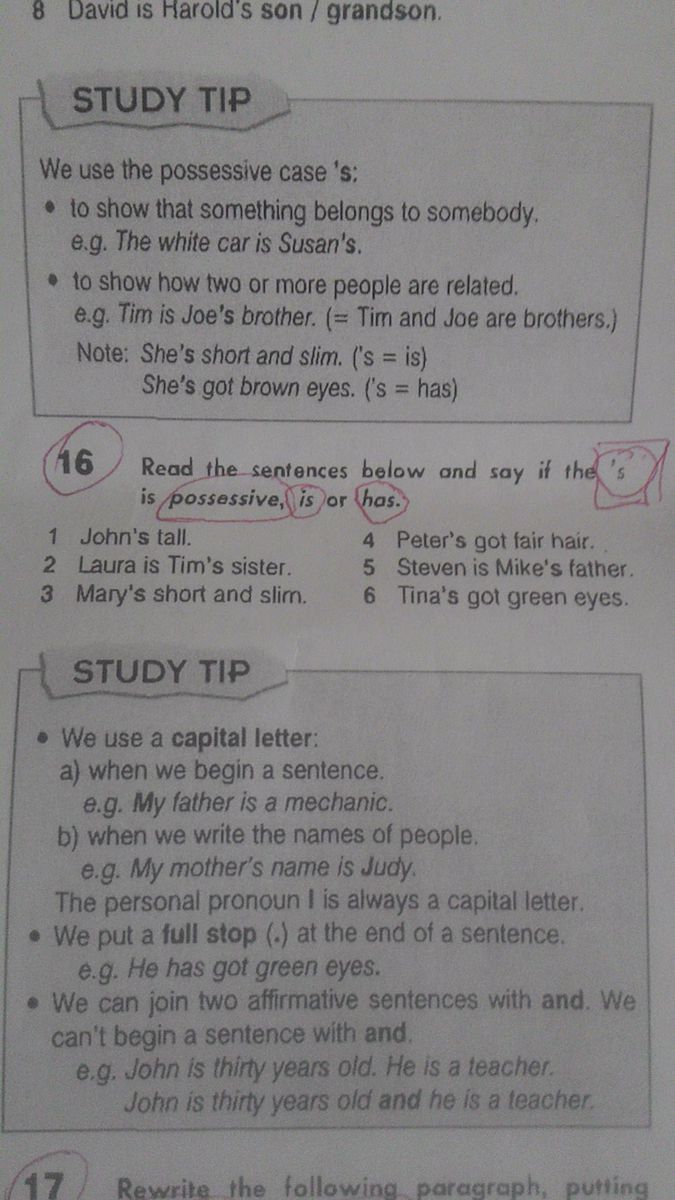 8 David is Harold's son / grandson.
STUDY TIP
We use the possessive case 's:
• to show that something belongs to somebody.
e.g. The white car is Susan's.
• to show how two or more people are related.
e.g. Tim is Joe's brother. (= Tim and Joe are brothers.)
Note: She's short and slim. ('s = is)
She's got brown eyes. ('s = has)
16 Read the sentences below and say if the 's
is possessive, is or has.
1 John's tall.
2 Laura is Tim's sister.
3 Mary's short and slim.
4 Peter's got fair hair.
5 Steven is Mike's father.
6 Tina's got green eyes.
STUDY TIP
• We use a capital letter:
a) when we begin a sentence.
e.g. My father is a mechanic.
b) when we write the names of people.
e.g. My mother's name is Judy.
The personal pronoun I is always a capital letter.
• We put a full stop (.) at the end of a sentence.
e.g. He has got green eyes.
• We can join two affirmative sentences with and. We
can't begin a sentence with and.
e.g. John is thirty years old. He is a teacher.
John is thirty years old and he is a teacher.
17 Rewrite the following paragraph, putting